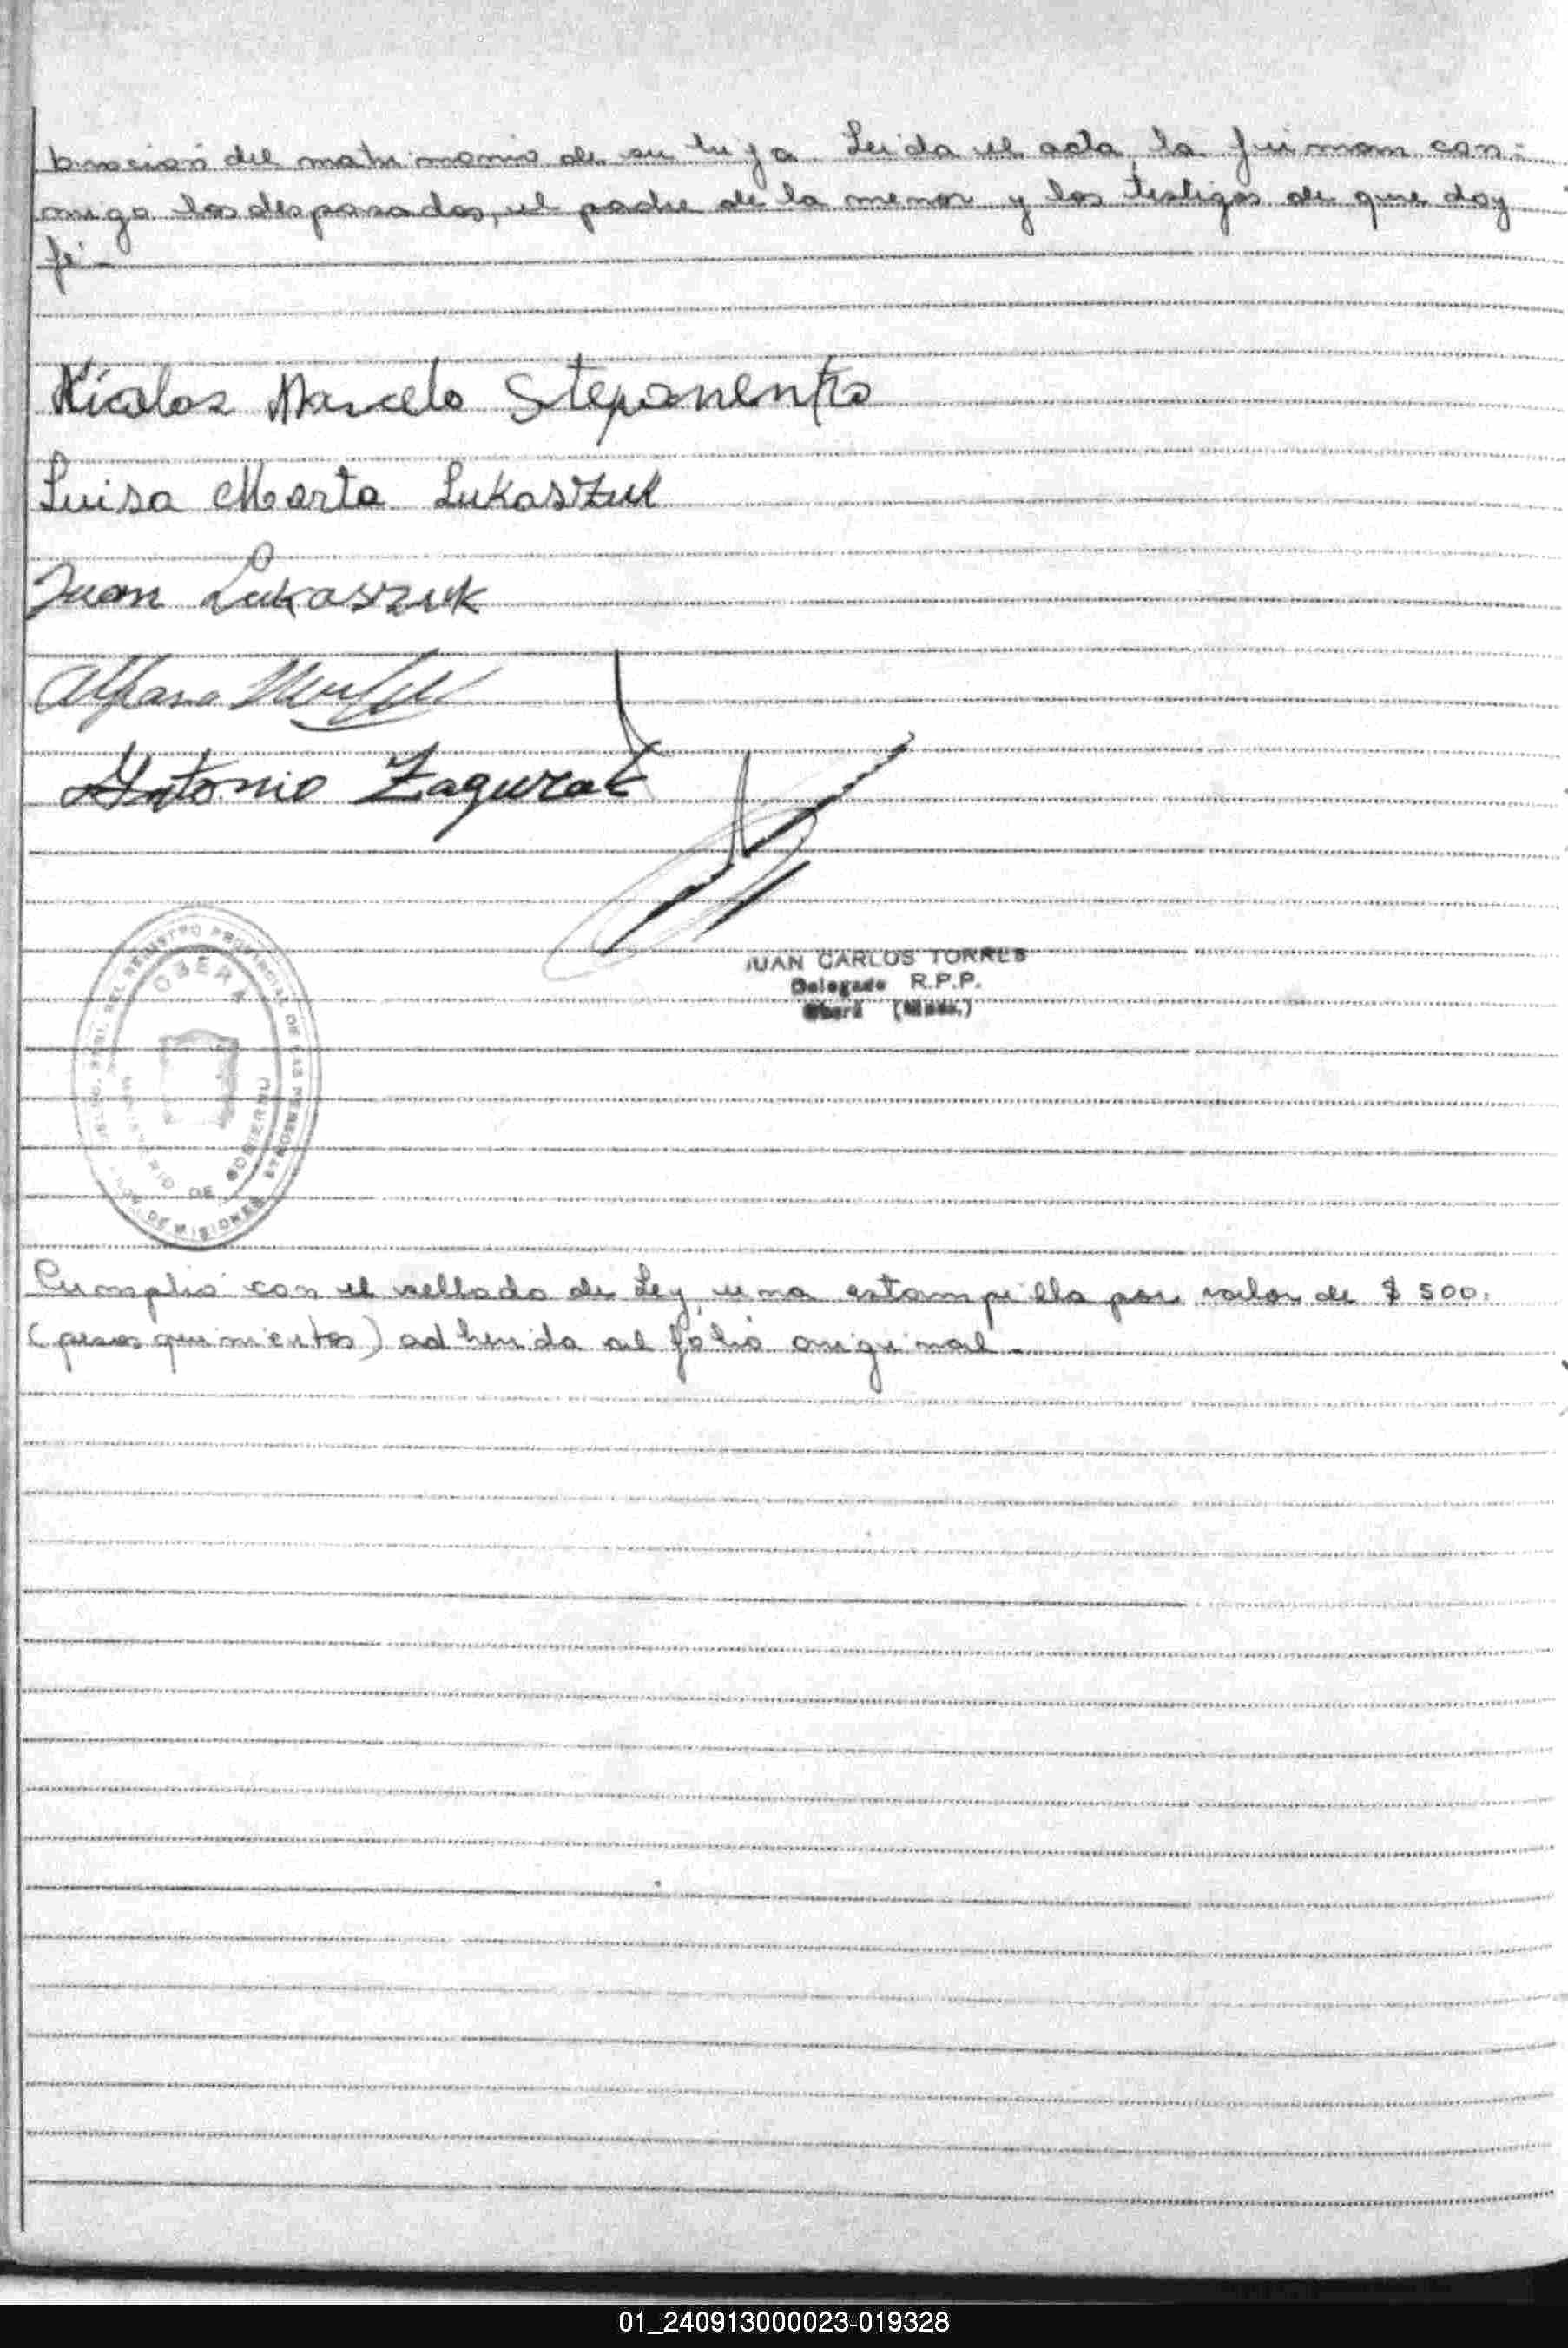 bración del matrimonio de su hija. Leida el acta, la firman con=
migo los desposados, el padre de la menor y los testigos de que doy
fé.-
Nicolas Marcelo Stepanenko
Luisa Marta Lukaszuk
Juan Lukaszuk
Alfonso
Antonio Zagurak
JUAN CARLOS TORRES
Delegado R.P.P.
Oberá (Mnes.)
REGISTRO PROVINCIAL DE LAS PERSONAS
OBERA
MINISTERIO DE GOBIERNO
DE MISIONES
Cumplió con el sellado de Ley, una estampilla por valor de $ 500.
(pesos quinientos) adherida al folio original.-
01_240913000023-019328